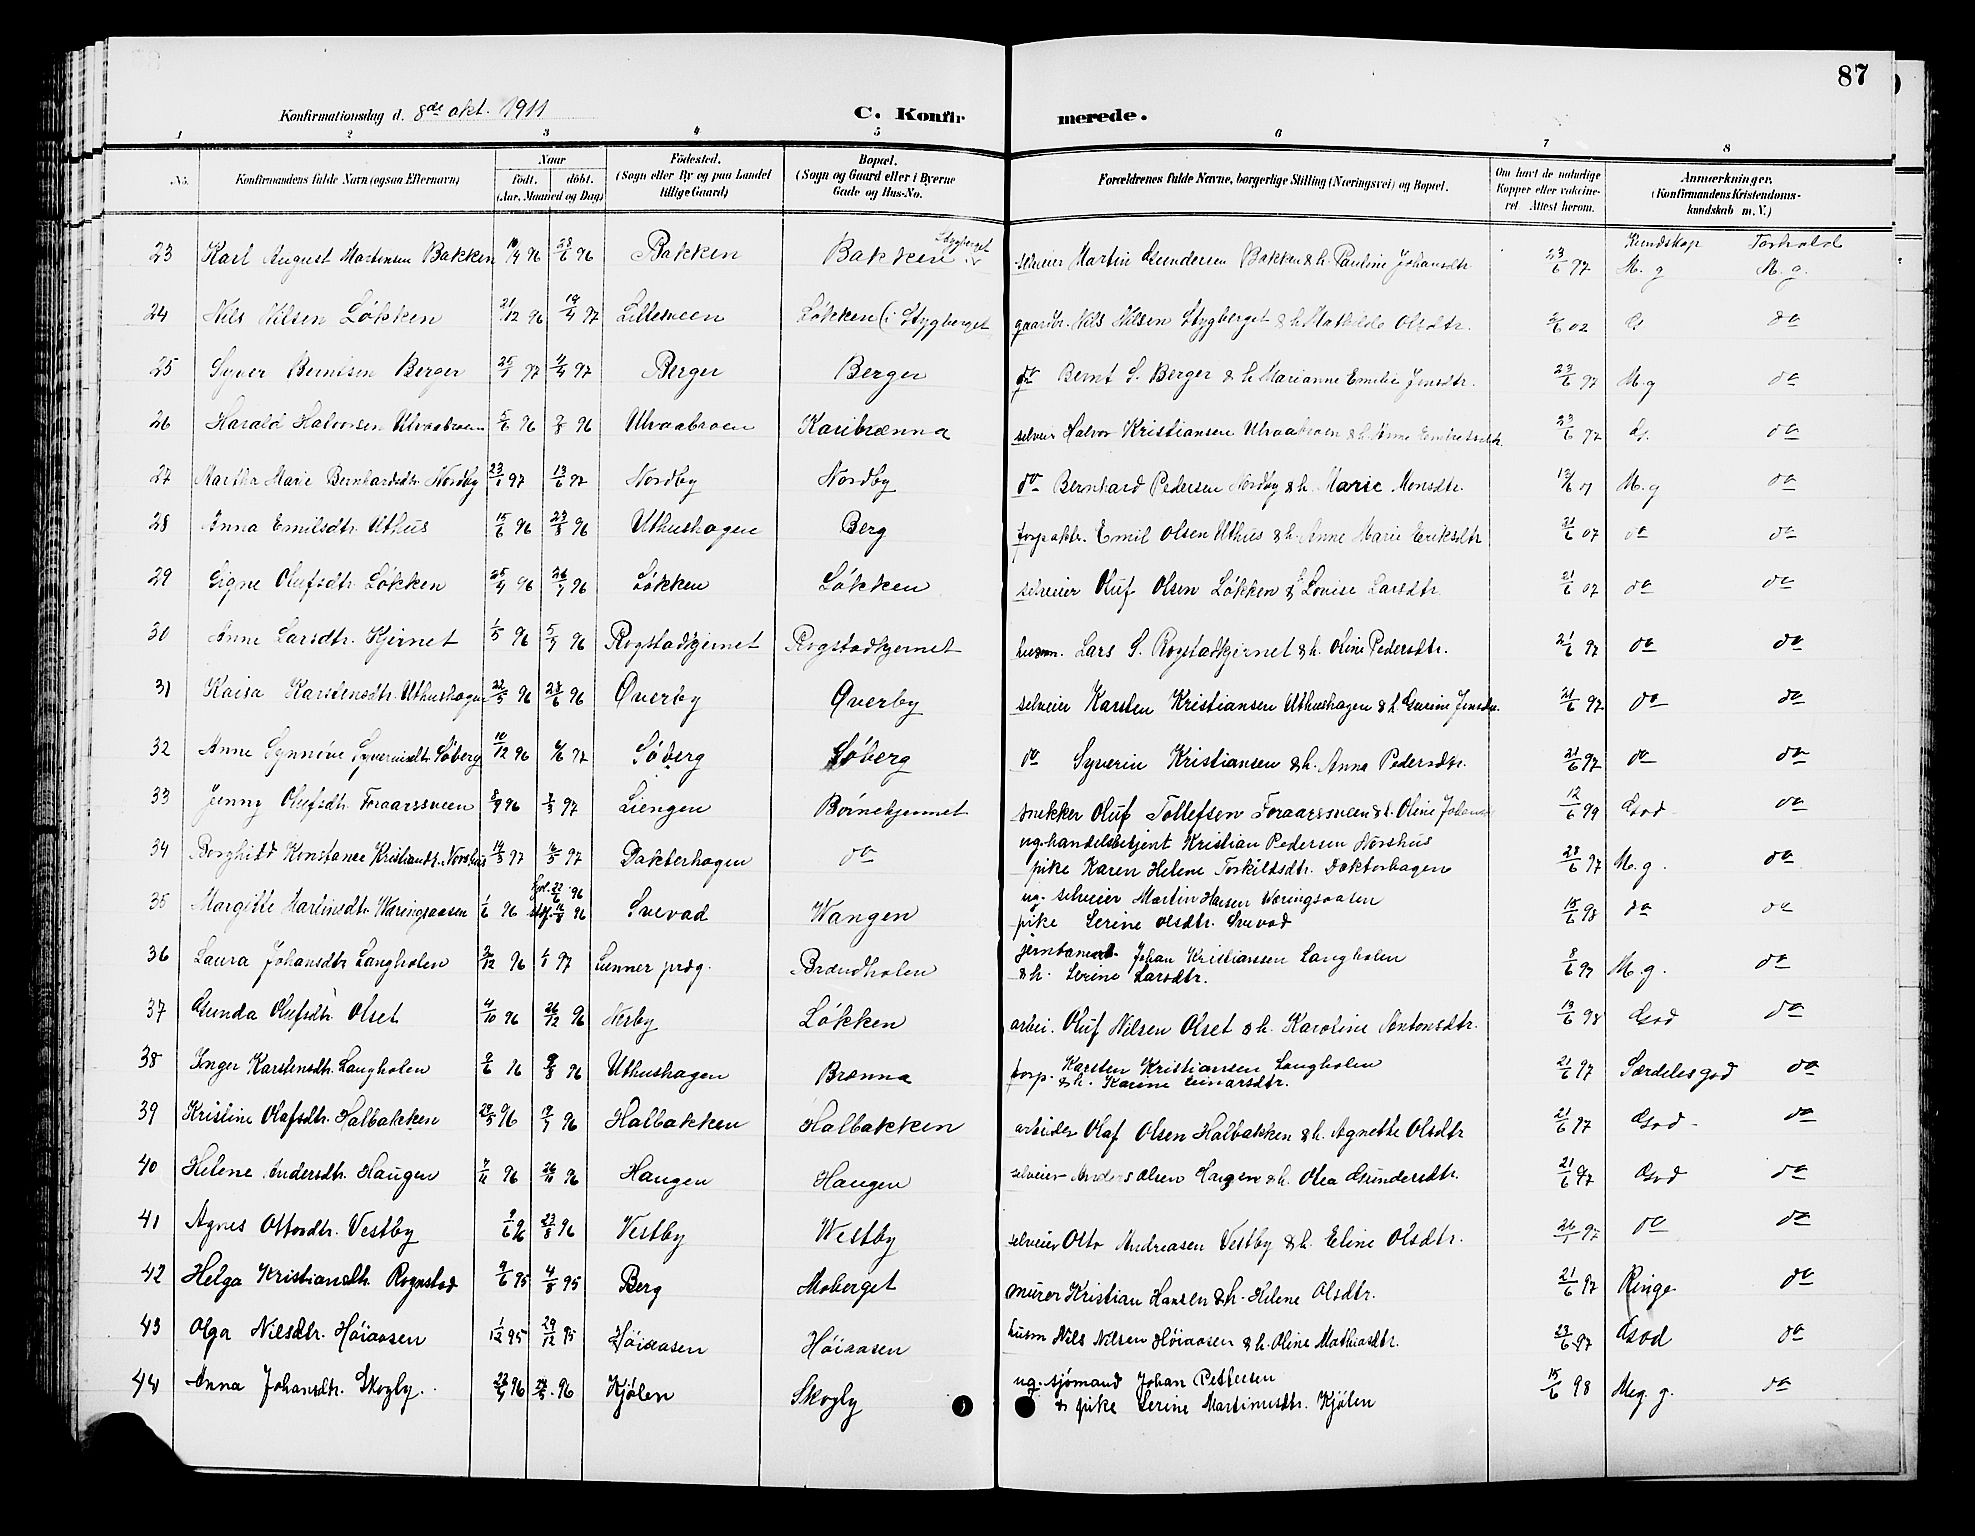 87
Konfirmationsdag d. 8de okt. 1911 C. Konfirmerede.
1 2 3 4 5 6 7 8
No. Konfirmandens fulde Navn (ogsaa Efternavn) Naar født. døbt. (Aar, Maaned og Dag) Fødested. (Sogn eller By og paa Landet tillige Gaard) Bopæl. (Sogn og Gaard eller i Byerne Gade og Hus-No. Forældrenes fulde Navne, borgerlige Stilling (Næringsvei) og Bopæl. Om havt de naturlige Kopper eller vaccineret. Attest herom. Anmærkninger. (Konfirmandens Kristendomskundskab m. V.)
Kundskap Forhold
23 Karl August Martinsen Bakken 10/9 96 28/6 96 Bakken Bakken Stygberget selveier Martin Gundersen Bakken & h. Pauline Johansdtr. 23/6 97 M. g M. g.
24 Nils Nilsen Løkken 21/12 96 19/4 97 Lillesveen Løkken (i Stygberget gaardbr. Nils Nilsen Stygberget & h. Mathilde Olsdtr. 02 G do
25 Syver Berntsen Berger 25/1 97 4/4 97 Berger Berger do Bernt S. Berger & h. Marianne Emilie Jensdtr. 23/6 97 M. g do
26 Harald Halvorsen Ulvaabroen 5/6 96 2/8 96 Ulvaabroen Karibrænna selveier Halvor Kristiansen Ulvaabroen & h. Anne 23/6 97 G. do
27 Martha Marie Bernhardsdtr. Nordby 23/1 97 13/6 97 Nordby Nordby do Bernhard Pedersen Nordby & h. Marie Monsdtr. 12/6 07 M. g do
28 Anna Emilsdtr. Uthus 15/6 96 23/8 96 Uthushagen Berg forpaktr. Emil Olsen Uthus & h. Anne Marie Eriksdtr 21/6 07 do do
29 Signe Olufsdtr. Løkken 25/4 96 26/7 96 Løkken Løkken selveier Oluf Olsen Løkken & h. Louise Larsdtr. 21/6 07 do do
30 Anne Larsdtr. Kjernet 1/5 96 5/7 96 Rogstadkjernet Rogstadkjernet husm. Lars S. Rogstadkjernet & h. Oline Pedersdtr. 21/6 97 do do
31 Kaisa Karstensdtr. Uthushagen 22/5 96 28/6 96 Øverby Øverby selveier Karsten Kristiansen Uthushagen & h. Gurine Jensdtr. 21/6 97 do do
32 Anne Synnøve Syverinsdtr. Søberg 10/12 96 6/6 97 Søberg Søberg do Syverin Kristiansen & h. Anna Pedersdtr. 21/6 97 do do
33 Jenny Olufsdtr. Foraarssveen 8/9 96 7/3 97 Liengen Børnekjernet snekker Oluf Tollefsen Foraarssveen & h. Oline Johansd 12/6 99 God do
34 Borghild Konstance Kristiansdtr. Norshus 14/3 97 16/5 97 Dakterhagen do ug. handelsbetjent Kristian Pedersen Norshus
pike Karen Helene Torkildsdtr. Doktorhagen 28/6 97 M. g. do
35 Margitte Martinsdtr. Wæringsaasen 1/6 96 22/6 96 96 Svevad Wangen ug. selveier Martin Hansen Wæringsaasen
pike Serine Olsdtr. Svevad 15/6 98 do do
36 Laura Johansdtr. Langholen 3/12 96 97 Lunner prdg. Brændholen jernbanearb. Johan Kristiansen Langholen
& h. Serine Larsdtr. 8/6 97 M. g. do
37 Gunda Olufsdtr Olset 4/10 96 26/12 96 Nerby Løkken arbei. Oluf Nilsen Olset & h. Karoline Antonsdtr. 13/6 98 God do
38 Inger Karstensdtr. Langholen 9/6 96 9/8 96 Uthushagen Brænna forp. Karsten Kristiansen Langholen
& h. Karine Einarsdtr. 21/6 97 Særdeles god do
39 Kristine Olafsdtr. Halbakken 29/5 96 19/7 96 Halbakken Halbakken arbeider Olaf Olsen Halbakken & h. Agnette Olsdtr 21/6 97 God do
40 Helene Andersdtr. Haugen 7/11 96 26/11 96 Haugen Haugen selveier Anders Olsen Haugen & h. Olea Gundersdtr. 21/6 97 God do
41 Agnes Ottosdtr. Vestby 9/6 96 23/8 96 Vestby Westby selveier Otto Andreasen Vestby & h. Eline Olsdtr. 26/1 97 do do
42 Helga Kristiansdtr. Rognstad 9/6 95 4/8 95 Berg Moberget murer Kristian Hansen & h. Helene Olsdtr. 21/6 97 Ringe do
43 Olga Nilsdtr. Høiaasen 1/12 95 29/12 95 Høiaasen Høiaasen husm Nils Nilsen Høiaasen & h. Oline Mathiasdtr. 23/6 97 God do
44 Anna Johansdtr. Skogly 96 96 Kjølen Skogly ug. sjømand Johan Pettersen
& pike Serine Martinusdtr. Kjølen 15/6 98 Meg. g. do